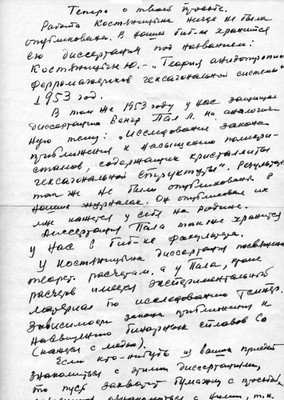 Теперь о твоей просьбе.
Работа Костюшина нигде не была
опубликована. В нашей биб-ке хранится
его диссертация под названием:
Ю. - "Теория анизотропии
ферромагнетиков гексагональной системы"
1953 год.
В том же 1953 году у нас защищал
диссертацию Венгр Пал Л. на аналогич-
ную тему: "Исследование закона
приближения к насыщению поликри-
сталлов, содержащих кристаллиты
гексагональной структуры". Результаты
тоже не были опубликованы в
наших журналах. Он опубликовал их
мне кажется у себя на родине.
Диссертация Пала также хранится
у нас в биб-ке факультета.
У диссертация посвящена
теорет. расчетам, а у Пала, кроме
расчетов имеется экспериментальный
материал по исследованию темпер.
зависимости закона приближения к
насыщению бинарных сплавов Co
(кажется с медью).
Если кто-нибудь из ваших приедет
знакомиться с этими диссертациями,
то пусть захватит бумагу с просьбой
с ними, т.к.